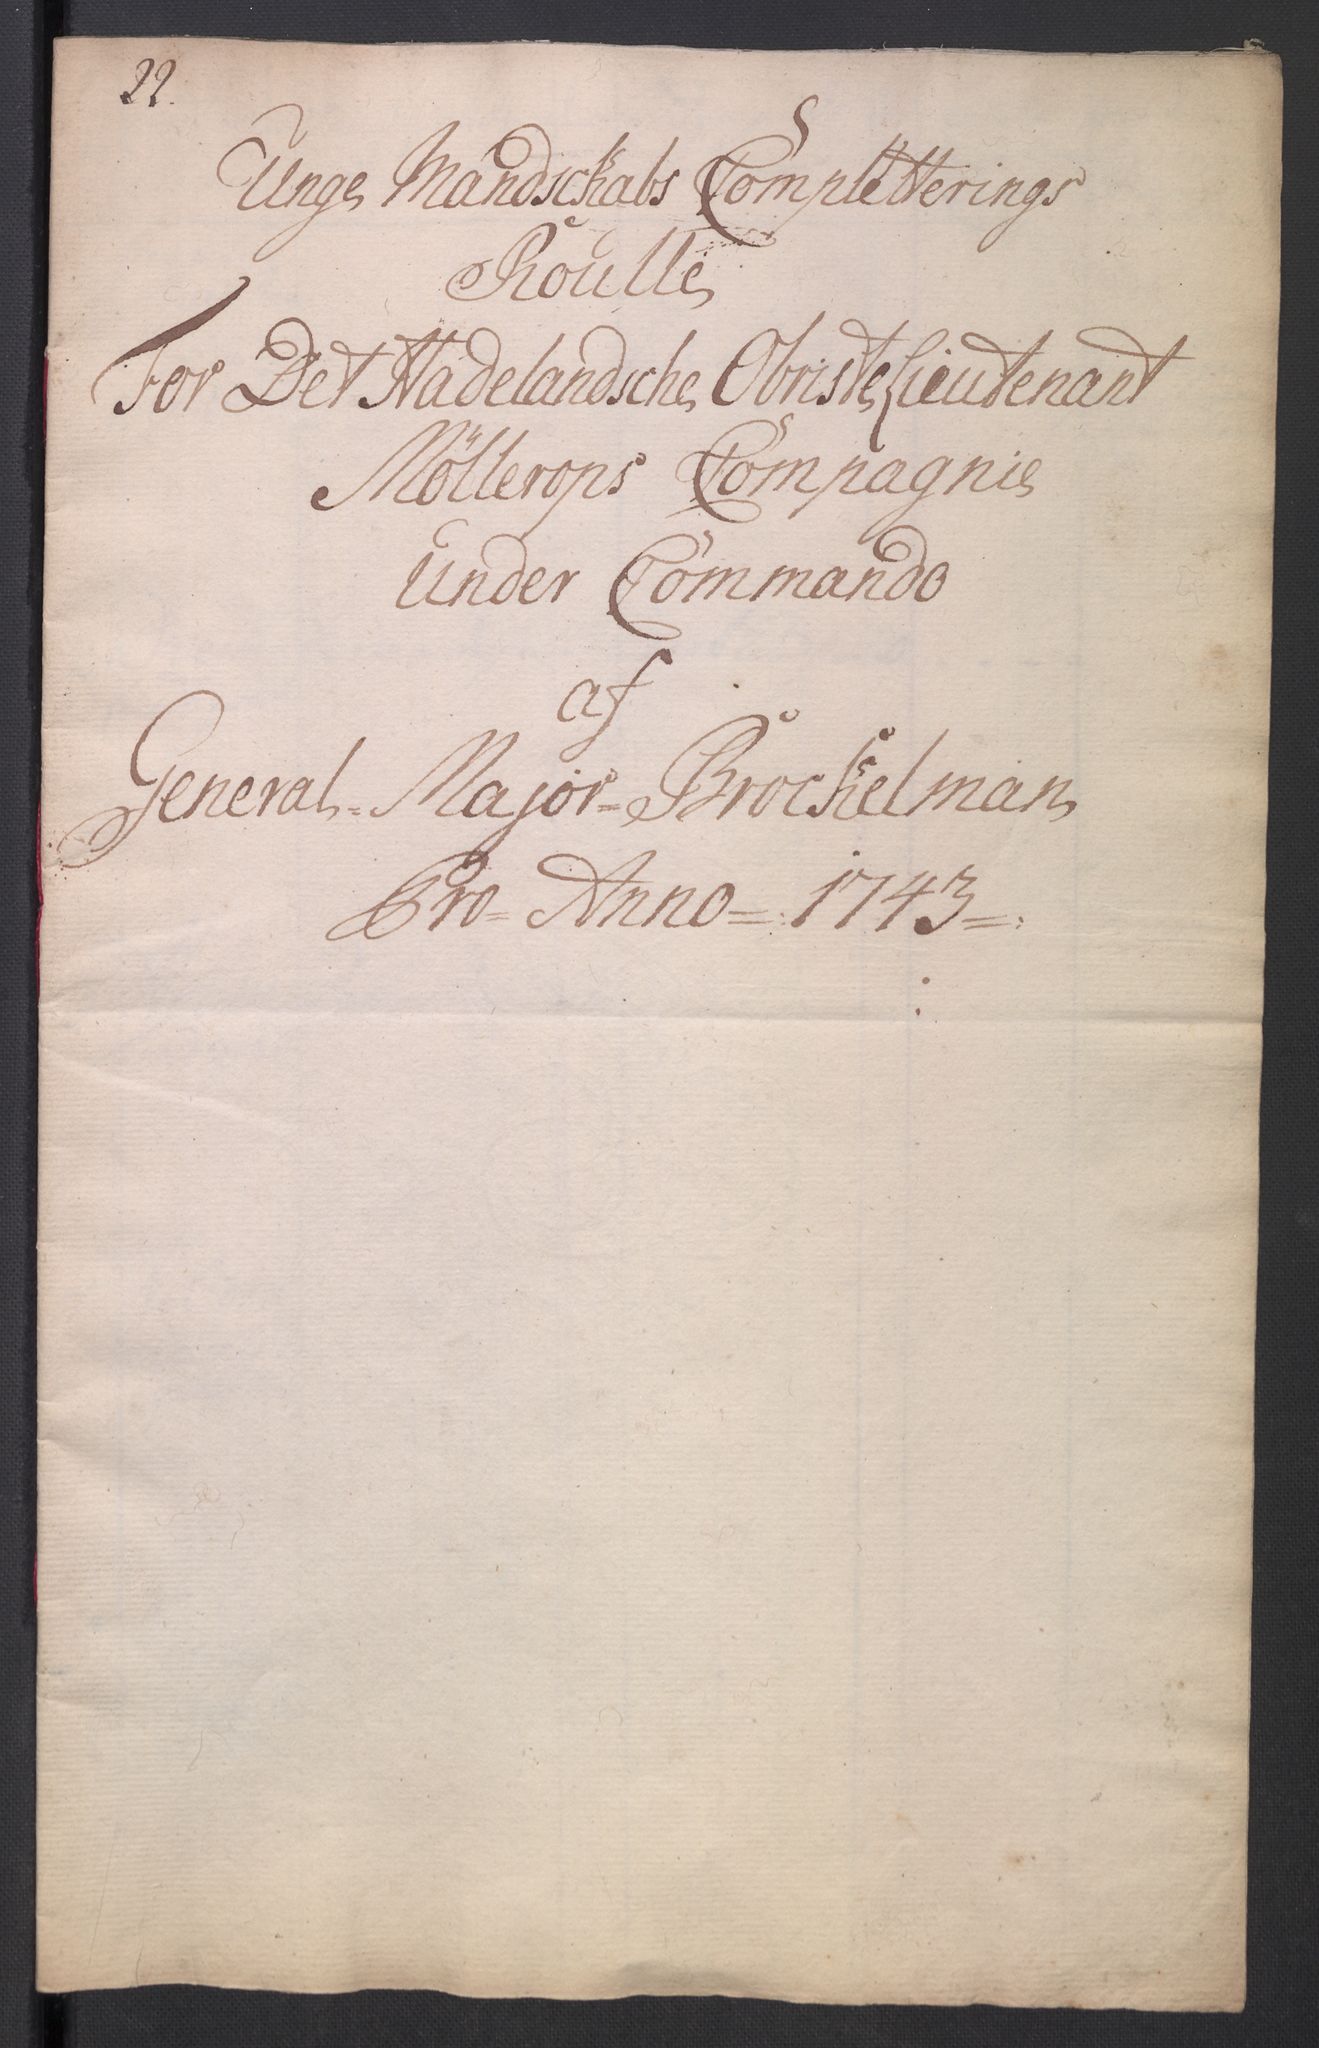 22.
Unge Mandskabs Completterings
Roulle
For Det Hadelandsche Obriste Lieutenant
Möllerops Compagnie
Under Commando
af
General-Major-Brockelman
Pro-Anno-1743